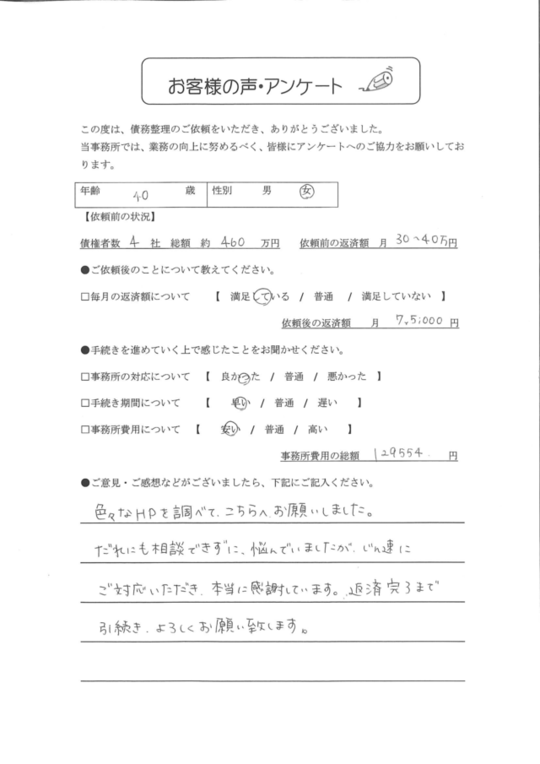 お客様の声・アンケート
この度は、債務整理のご依頼をいただき、ありがとうございました。
当事務所では、業務の向上に努めるべく、皆様にアンケートへのご協力をお願いしてお
ります。
年齢 40 歳 性別 男 女
【依頼前の状況】
債権者数 4 社 総額 約 460 万円 依頼前の返済額 月 30~40万円
●ご依頼後のことについて教えてください。
□毎月の返済額について 【 満足している / 普通 / 満足していない 】
依頼後の返済額 月 7,5,000 円
●手続きを進めていく上で感じたことをお聞かせください。
□事務所の対応について 【 良かった / 普通 / 悪かった 】
□手続き期間について 【 早い / 普通 / 遅い 】
□事務所費用について 【 安い / 普通 / 高い 】
事務所費用の総額 129554. 円
●ご意見・ご感想などがございましたら、下記にご記入ください。
色々なHPを調べて、こちらへ、お願いしました。
だれにも相談できずに、悩んでいましたが、じん速に
ご対応いただき、本当に感謝しています。返済完了まで
引続き、よろしくお願い致します。